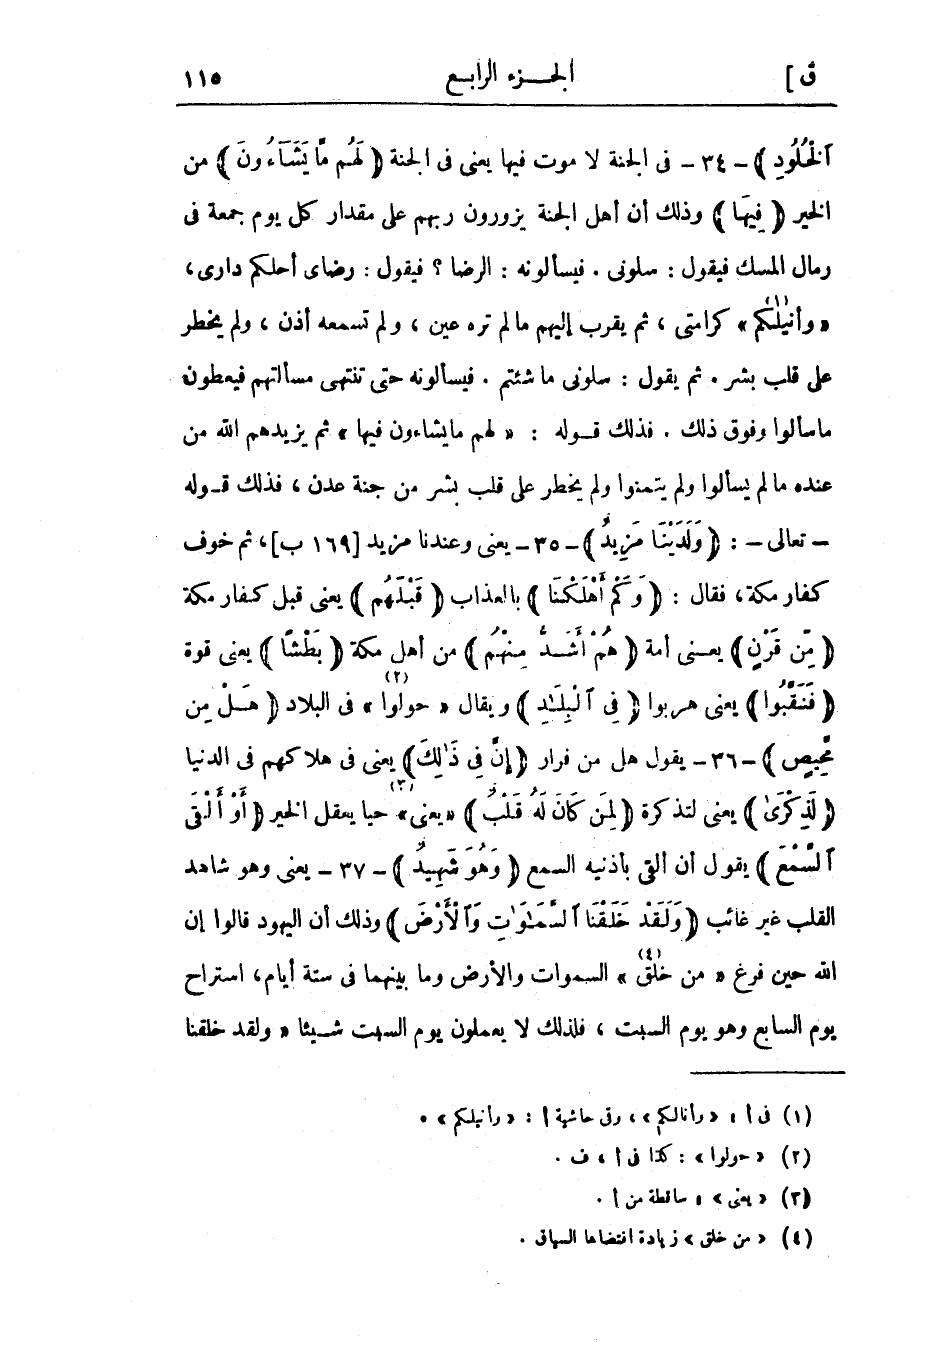 ق ] الجـــزء الرابـع ١١٥
ٱلْخُلُودِ ﴾ - ٣٤ - فى الجنة لا موت فيها يعنى فى الجنة ﴿ لَهُم مَّا يَشَآءُونَ ﴾ من
الخير ﴿ فِيهَا ﴾ وذلك أن أهل الجنة يزورون ربهم على مقدار كل يوم جمعة فى
رمال المسك فيقول : سلونى . فيسألونه : الرضا ؟ فيقول : رضاى أحلكم دارى ،
« وأنيلكم » (١) كرامتى ، ثم يقرب إليهم ما لم تره عين ، ولم تسمعه أذن ، ولم يخطر
على قلب بشر . ثم يقول : سلونى ما شئتم . فيسألونه حتى تنتهى مسألتهم فيعطون
ما سألوا وفوق ذلك . فذلك قـوله : « لهم ما يشاءون فيها » ثم يزيدهم الله من
عنده ما لم يسألوا ولم يتمنوا ولم يخطر على قلب بشر من جنة عدن ، فذلك قـوله
- تعالى - : ﴿ وَلَدَيْنَا مَزِيدٌ ﴾ - ٣٥ - يعنى وعندنا مزيد [ ١٦٩ ب ] ، ثم خوف
كفار مكة ، فقال : ﴿ وَكَمْ أَهْلَكْنَا ﴾ بالعذاب ﴿ قَبْلَهُم ﴾ يعنى قبل كفار مكة
﴿ مِّن قَرْنٍ ﴾ يعـنى أمة ﴿ هُمْ أَشَـدُّ مِنْهُم ﴾ من أهل مكة ﴿ بَطْشًا ﴾ يعنى قوة
﴿ فَنَقَّبُوا ﴾ يعنى هربوا ﴿ فِى ٱلْبِلَـٰدِ ﴾ ويقال « حولوا » (٢) فى البلاد ﴿ هَـلْ مِن
مَّحِيصٍ ﴾ - ٣٦ - يقول هل من فرار ﴿ إِنَّ فِى ذَٰلِكَ ﴾ يعنى فى هلاكهم فى الدنيا
﴿ لَذِكْرَىٰ ﴾ يعنى لتذكرة ﴿ لِمَن كَانَ لَهُ قَلْبٌ ﴾ « يعنى » (٣) حيا يعقل الخير ﴿ أَوْ أَلْقَى
ٱلسَّمْعَ ﴾ يقول أن ألقى بأذنيه السمع ﴿ وَهُوَ شَهِيدٌ ﴾ - ٣٧ - يعنى وهو شاهد
القلب غير غائب ﴿ وَلَقَدْ خَلَقْنَا ٱلسَّمَـٰوَٰتِ وَٱلْأَرْضَ ﴾ وذلك أن اليهود قالوا إن
الله حين فرغ « من خلق » (٤) السموات والأرض وما بينهما فى ستة أيام ، استراح
يوم السابع وهو يوم السبت ، فلذلك لا يعملون يوم السبت شـيئا « ولقد خلقنا
(١) فى أ : « وأنالكم » ، وفى حاشية أ : « وأنيلكم » .
(٢) « حولوا » : كذا فى أ ، ف .
(٣) « يعنى » : ساقطة من أ .
(٤) « من خلق » زيادة اقتضاها السياق .